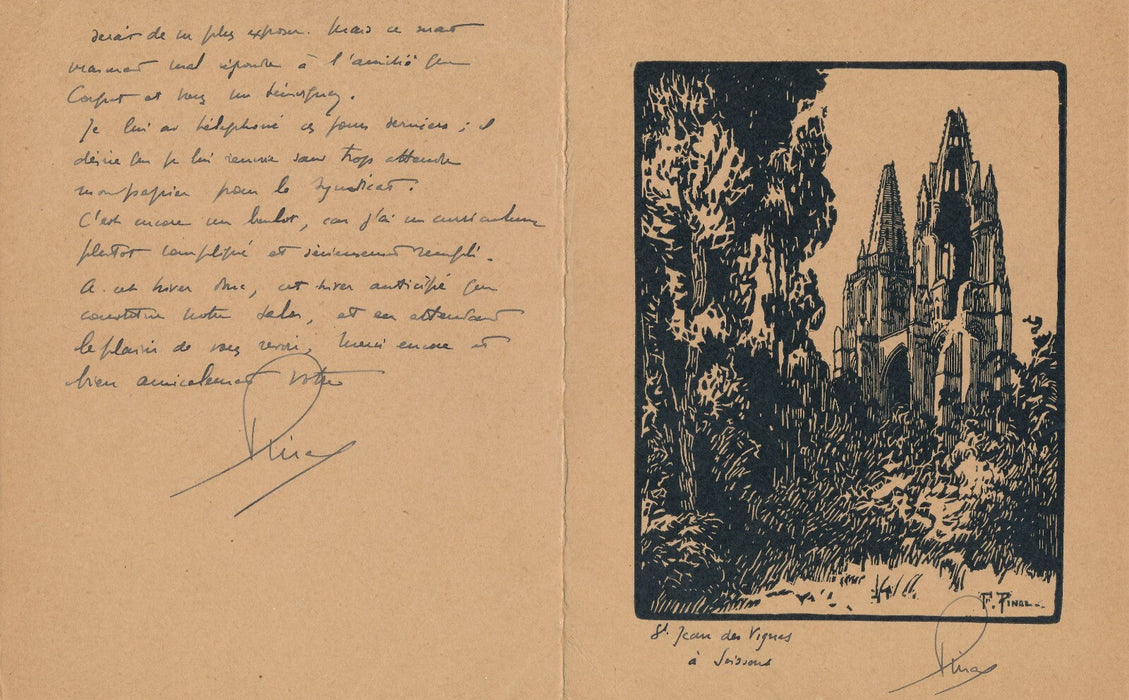 serait de ne plus exposer. Mais ce serait
vraiment mal répondre à l'amitié que
et vous me témoignez.
Je lui ai téléphoné ces jours derniers ; il
désire que je lui renvoie sans trop attendre
mon papier pour le syndicat.
C'est encore un boulot, car j'ai un curriculum
plutôt compliqué et sérieusement rempli.
A cet hiver donc, cet hiver anticipé que
constitue notre Salon, et en attendant
le plaisir de vous revoir, Merci encore et
bien amicalement votre
Pinal
F. PINAL
St. Jean des Vignes
à Soissons
Pinal